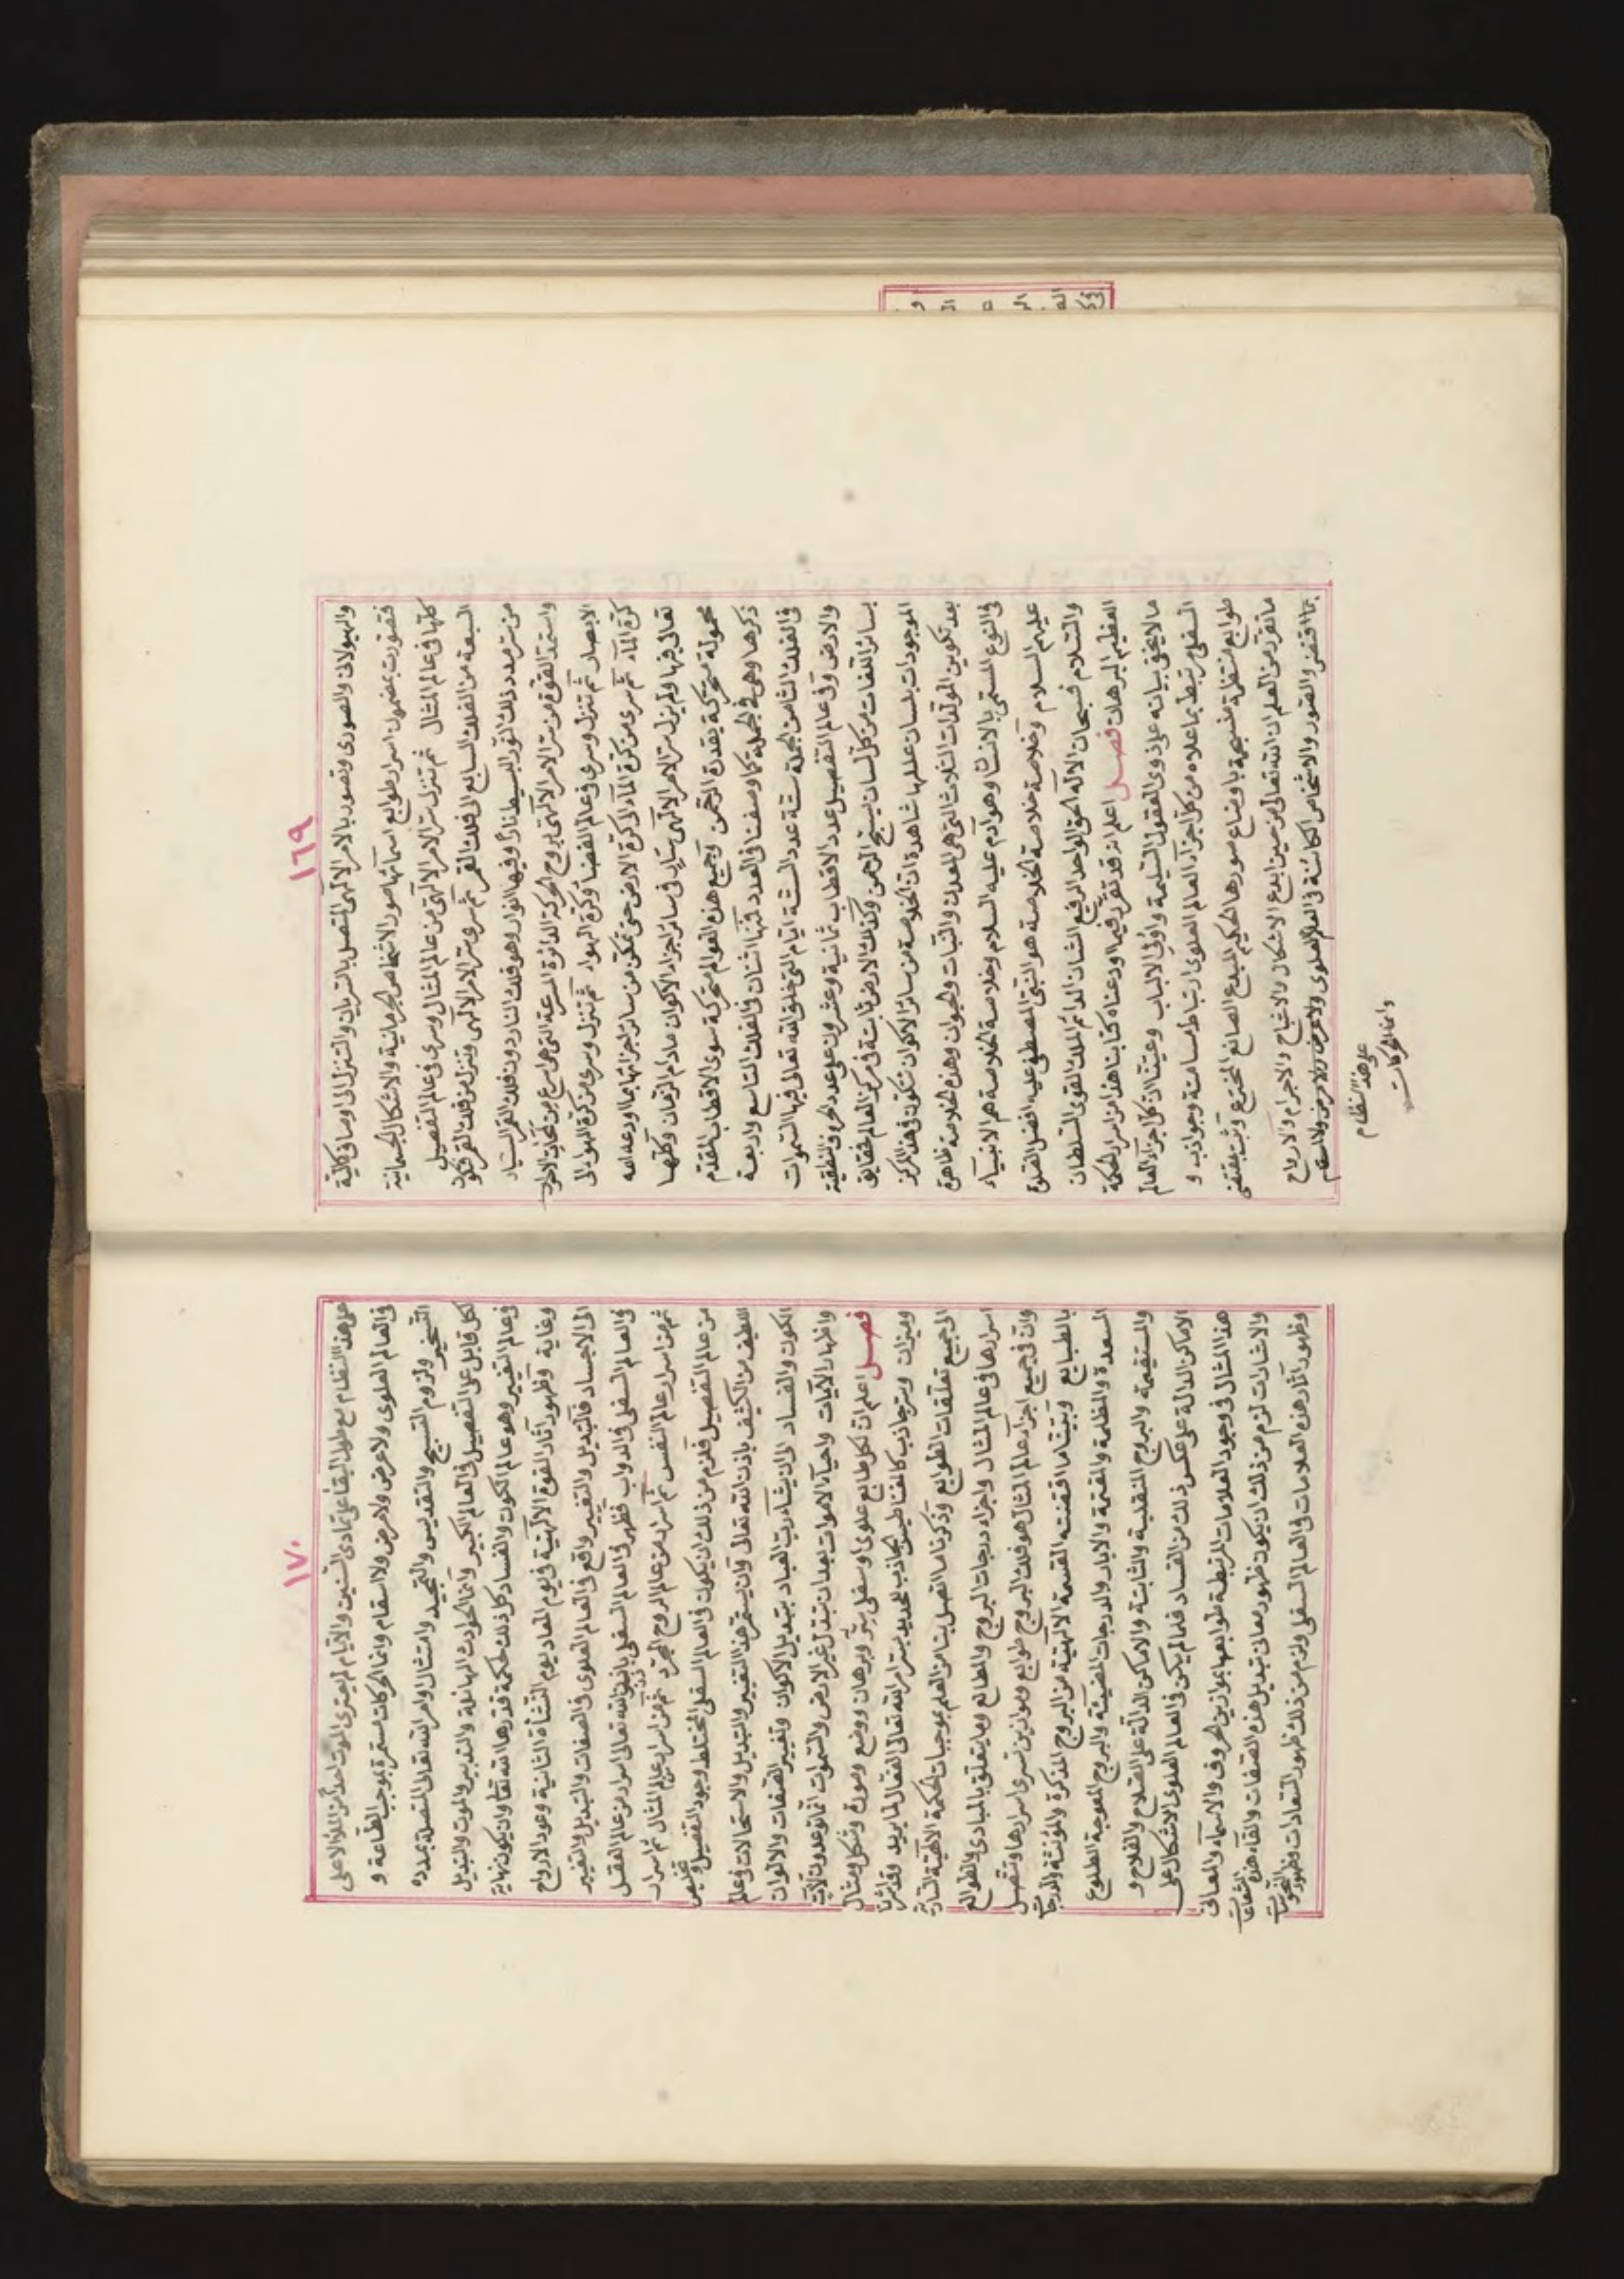 ١٦٩
والهيولانى والصورى وتصور بالامر الالهى المتصل بالسريان والتنزل الى اوصاف كلية
فتصورت بمضمون اسرار طوابع اسمائها صور الاشخاص الجرمانية والاشكال الجسمانية
كلها فى عالم المثال ثم تنزل سر الامر الالهى من عالم المثال وسرى فى عالم التفصيل
السبعة من الفلك السابع الى فلك القمر ثم سرى سر الامر الالهى وتنزل من فلك القمر فتكون
من سر مدد ذلك النور البسيط نارا وفيها انوار وهو فلك النار دون فلك القمر السيار
واستمد القوة من سر الامر الالهى بروح الحركة الدائرة المسرعة التى هى اسرع من لمحات
الابصار ثم تنزل وسرى فى عالم الفضا وكرة الهواء ثم تنزل وسرى من كرة الهوا الى
كرة الماء ثم سرى من كرة الماء الى كرة الارض حتى تمكن من سائر اجزائها بما اودعه الله
تعالى فيها ولم يزل سر الامر الالهى سار فى سائر اجزاء الاكوان مادام الزمان وكلها
محمولة متحركة بقدرة الرحمن وجميع هذه العوالم متحركة سوى الاقطاب المقدم
ذكرها وهى فى الجملة كما وصفنا فى العدد لكنها اثنان فى الفلك التاسع واربعة
فى الفلك الثامن الجملة ستة عدد الستة ايام التى خلق الله تعالى فيها السموات
والارض وفى عالم التفصيل عدد الاقطاب ثمانية وعشرون على عدد الحروف النطقية
بسائر اللغات من كل لسان يسبح الرحمن وكذلك الارض ثابتة فى مركز العالم فحقايق
الموجودات بلسان عللها شاهدة ان الخلاصة من سائر الاكوان تتكون فى هذا المركز
بعد تكوين المولدات الثلاث التى هى المعدن والنبات والحيوان وهذه الخلاصة ظاهرة
فى النوع المسمى بالانسان وهو ادم عليه السلام وخلاصة الخلاصة هم الانبياء
عليهم السلام وخلاصة خلاصة الخلاصة هو النبى المصطفى عليه افضل الصلوة
والسلام فسبحان الاله الحق الواحد الرفيع الشان الدائم الملك القوى السلطان
العظيم البرهان فصل اعلم انه قد تقرر فيما اودعناه كتابنا هذا من اسرار الحكمة
ما لا يخفى بيانه على ذوى العقول السليمة واولى الالباب وعينا ان كل اجزاء العالم
السفلى مرتبط بما علاه من كل اجزاء العالم العلوى ارتباط مسامتة وجواذب و
طوابع منتظمة منسجمة باوضاع صورها الحكيم المبدع الصانع المخترع وثبت بمقتضى
ما تقرر من العلم ان الله تعالى من حين ابدع الاشكال والاشباح والاجرام والارواح
بما اقتضى والصور والاشخاص الكائنة فى العالم العلوى ولا عرض ولا مرض ولا اسقام
على هذا النظام
وانما الحركات
١٧٠
على هذا النظام مع طول البقا على تمادى السنين والايام لم يعترى الموت احدا من الملا الاعلى
فى العالم العلوى ولا عرض ولا مرض ولا اسقام وانما الحركات مستمرة بموجب الطاعة و
التسخير ولزوم التسبيح والتقديس والتمجيد وامتثال اوامر الله تعالى المتصلة بمدده
لكل قابل على التفصيل فى العالم الكبير وانما الحوادث المانعة والتدبير والموت والتبديل
فى عالم التغيير وهو عالم الكون والفساد كل ذلك لحكمة قدرها الله تعالى وان يكون نهاية
وغاية وظهور اثار القوة الالهية فى يوم المعاد يوم النشأة الثانية وعود الارواح
الى الاجساد فالتبديل والتغيير واقع فى العالم العلوى فى الصفات والتبديل والتغيير
فى العالم السفلى فى الذوات فظهر فى العالم السفلى باذن الله تعالى اسرار من عالم العقل
ثم من اسرار عالم النفس ثم اسرار من عالم الروح المجرد ثم من اسرار عالم المثال ثم اسرار
من عالم التفصيل فلزم من ذلك ان يكون فى العالم السفلى المختلط وجود التفصيل وتخليص
اللطيف من الكثيف باذن الله تعالى وان يستقر هذا التغيير والتبديل والاستحالات فى عالم
الكون والفساد الى ان يشاء رب العباد بتبديل الاكوان وتغيير الصفات والالوان
واظهار الايات واحياء الاموات بعد ان تبدل غير الارض والسموات انما توعدون لات
فصل اعلم ان لكل طابع علوى وسفلى سر وبرهان ووضع وصورة وشكل ومثال
وميزان وسر جاذب كالمغناطيس الجاذب للحديد بسر امر الله تعالى الفعال لما يريد وقد اشرنا
الى جميع تعلقات الطوابع وذكرنا ما اتصل بنا من العلم بموجبات الحكمة الالهية السارية
اسرارها فى عالم المثال واجزاء درجات البروج والمطالع وما يتعلق بالمبادى والطوالع
وان فى جميع اجزاء عالم المثال هو فلك البروج طوابع وموازين تسرى اسرارها وتتصل
بالطبايع وبينا ما اقتضته القسمة الالهية من البروج المذكرة والمؤنثة والدرجات
السعدة والمظلمة والقتمة والابار والدرجات المضيئة والبروج المعوجة الطلوع
والمستقيمة والبروج المنقلبة والثابتة والاماكن الدالة على الصلاح والفلاح و
الاماكن الدالة على عكس ذلك من الفساد فلما لم يكن فى العالم العلوى الاشكال على
هذا المثال فى وجود العلامات المرتبطة طوابعها بموازين الحروف والاسماء والمعانى
والاشارات لزم من ذلك ان يكون ظهور معانى تبديل هذه الصفات والقاء هذه الشعاعات
وظهور اثار هذه العلامات فى العالم السفلى ولزم من ذلك ظهور السعادات وظهور النحوسات